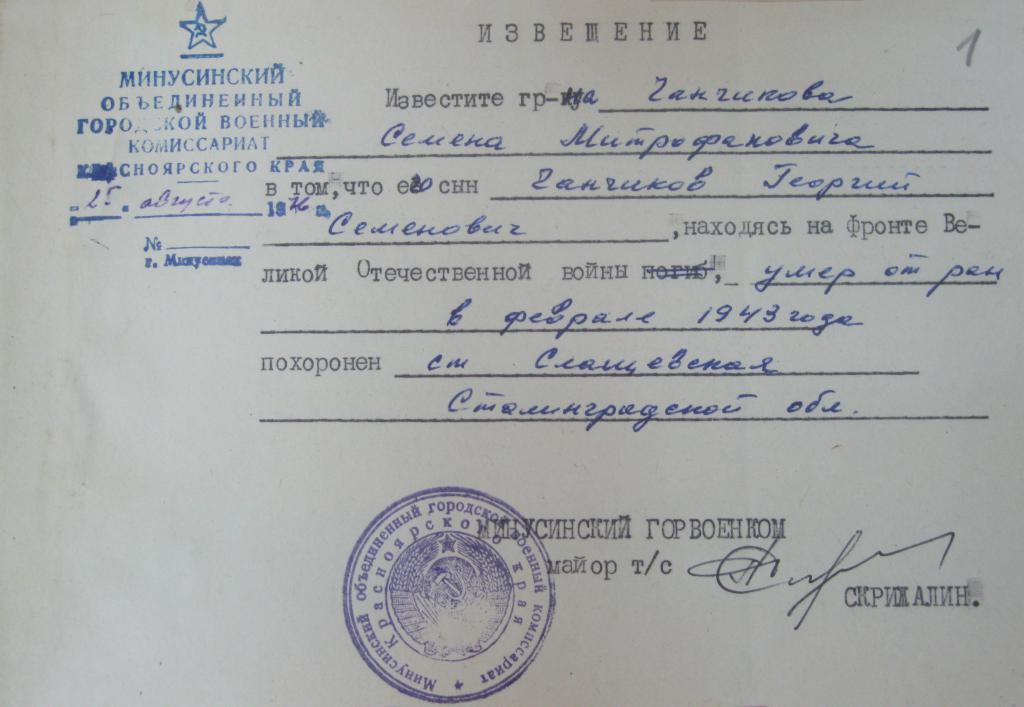 ИЗВЕЩЕНИЕ
1
МИНУСИНСКИЙ
ОБЪЕДИНЕННЫЙ
ГОРОДСКОЙ ВОЕННЫЙ
КОМИССАРИАТ
КРАСНОЯРСКОГО КРАЯ
25 августа 1976 г.
№
г. Минусинск
Известите гр-на Чанчикова
Семена Митрофановича
в том, что его сын Чанчиков Георгий
Семенович, находясь на фронте Ве-
ликой Отечественной войны погиб, умер от ран
в феврале 1943 года
похоронен ст Слащевская
Сталинградской обл.
МИНУСИНСКИЙ ГОРВОЕНКОМ
майор т/с
СКРИЖАЛИН.
Минусинский объединенный городской военный комиссариат
Красноярского края